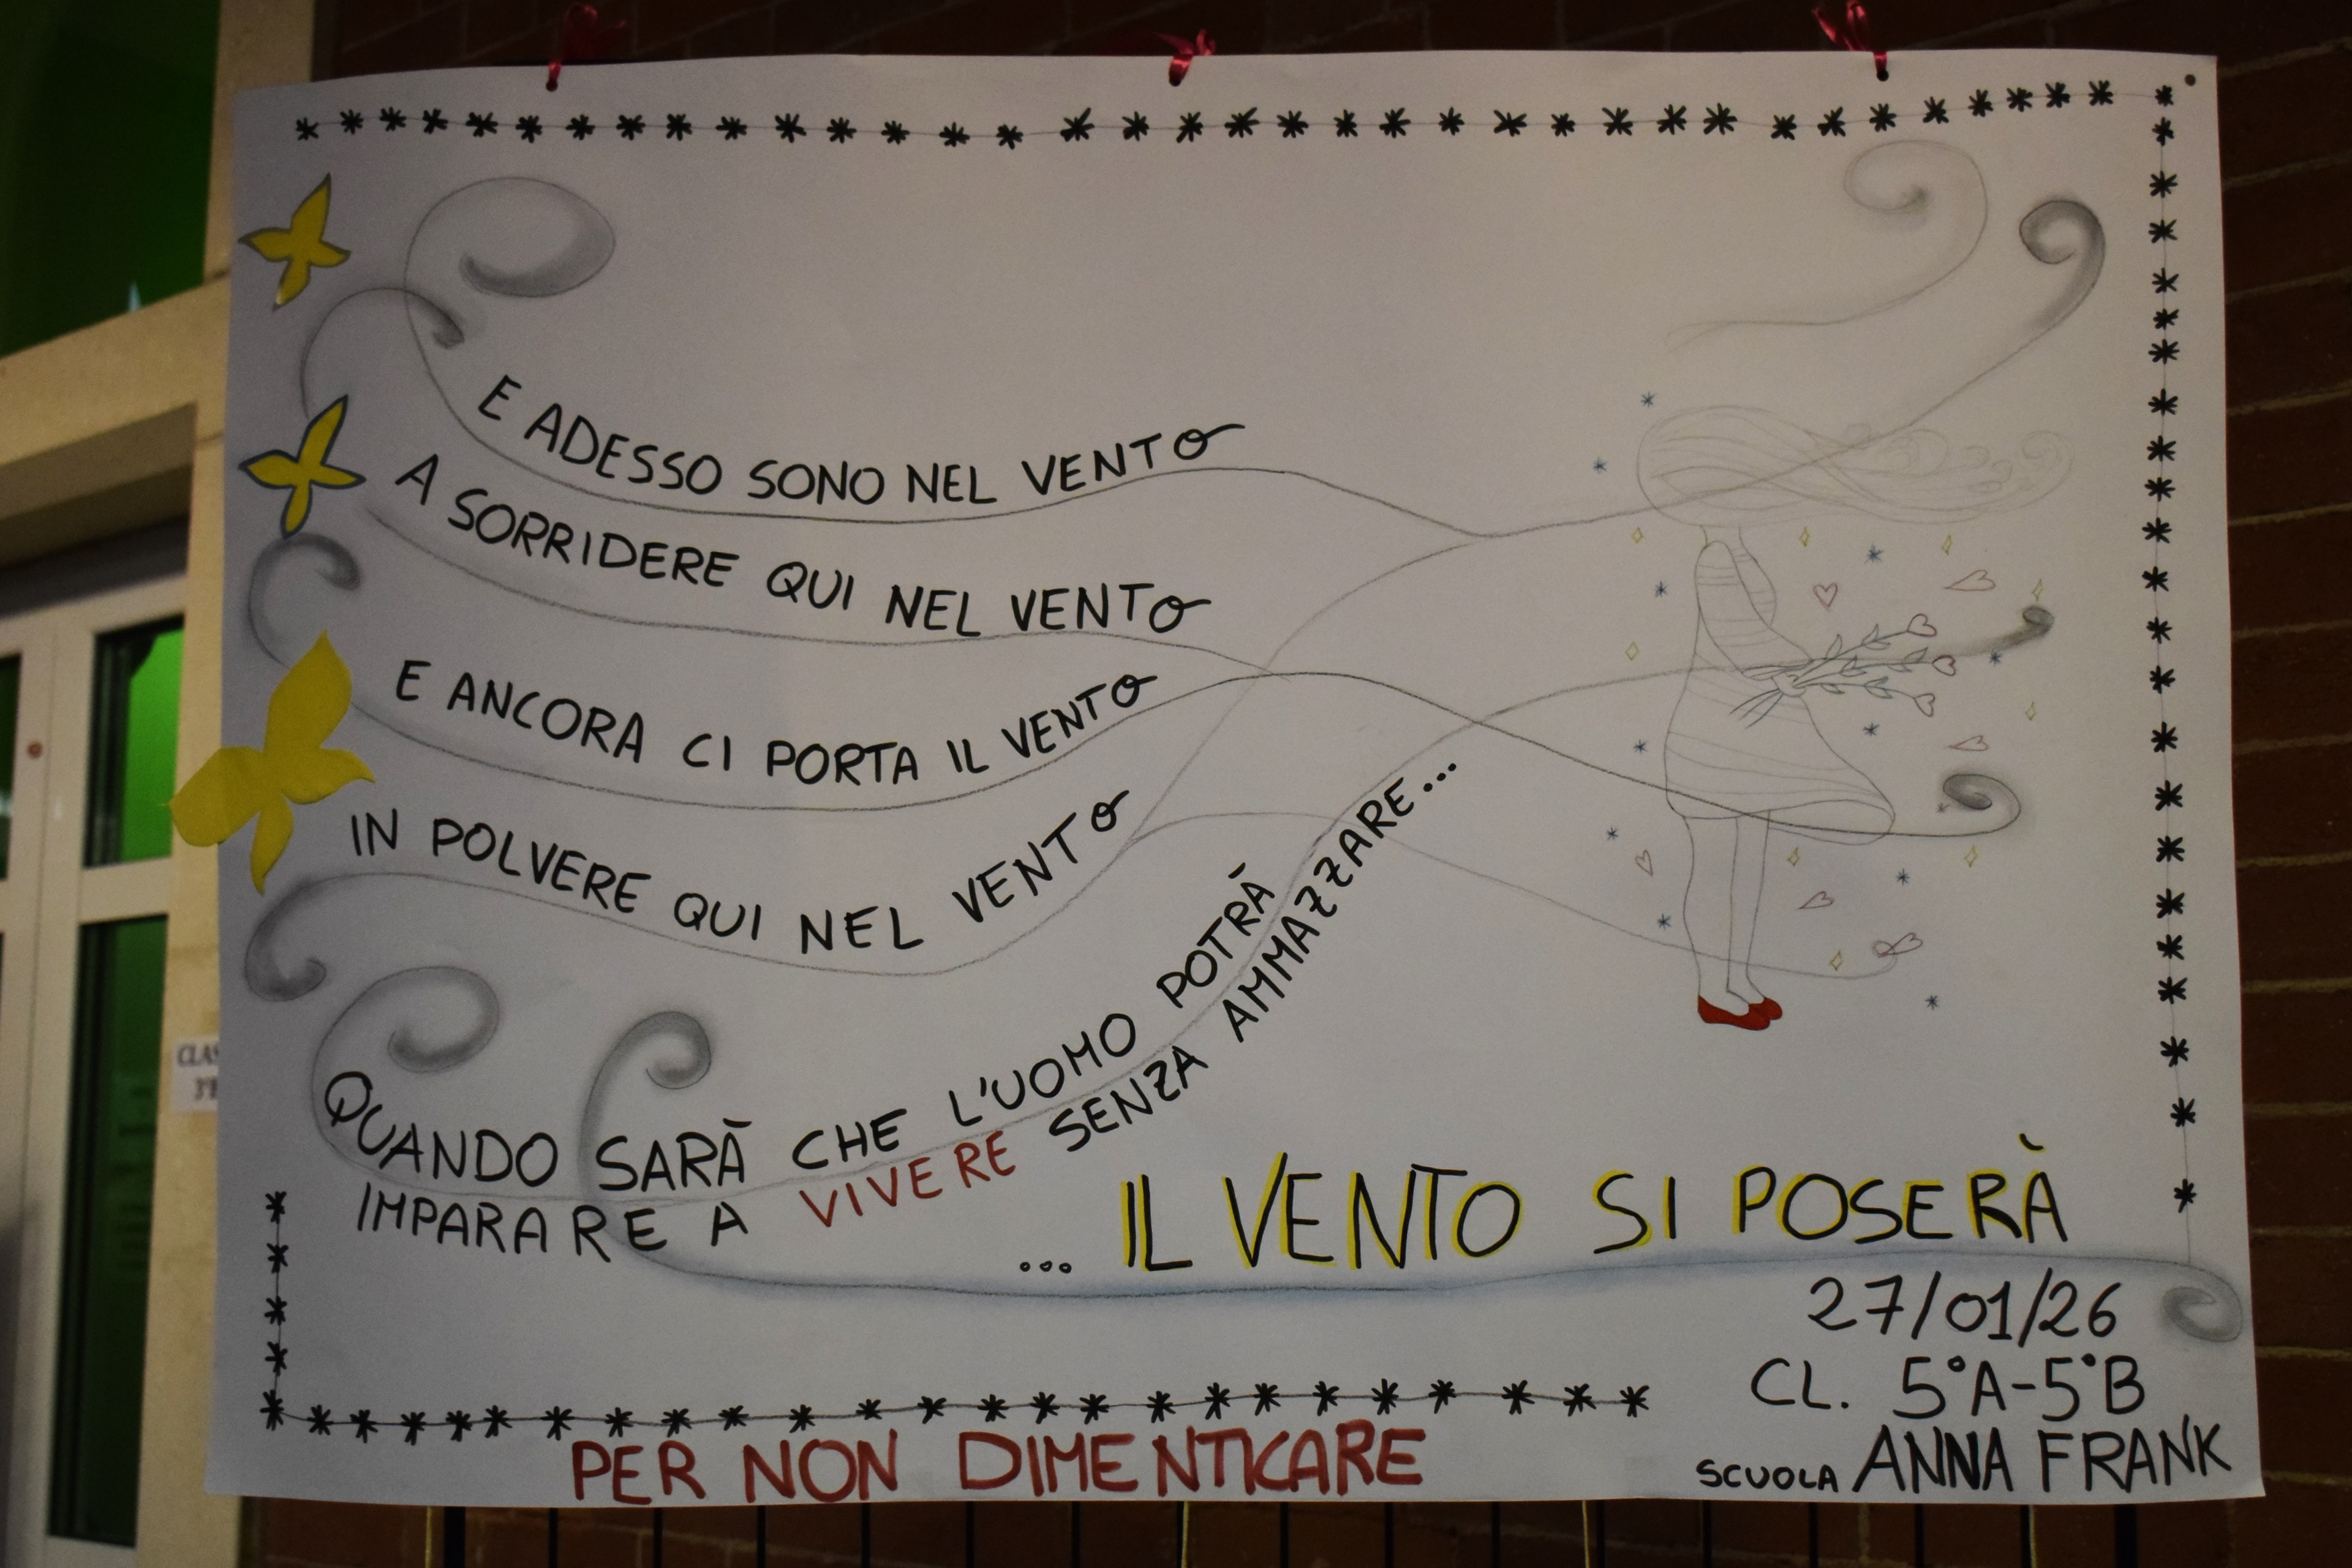 E ADESSO SONO NEL VENTO
A SORRIDERE QUI NEL VENTO
E ANCORA CI PORTA IL VENTO
IN POLVERE QUI NEL VENTO
QUANDO SARÀ CHE L'UOMO POTRÀ
IMPARARE A VIVERE SENZA AMMAZZARE...
... IL VENTO SI POSERÀ
27/01/26
CL. 5°A-5°B
SCUOLA ANNA FRANK
PER NON DIMENTICARE